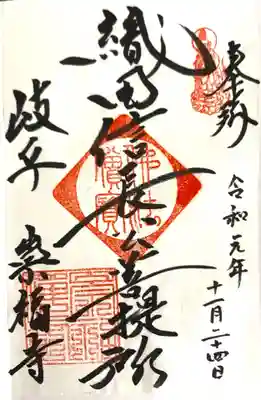 奉拝
令和元年
十一月二十四日
織田信長公菩提所
佛法
僧寶
岐阜
崇福寺